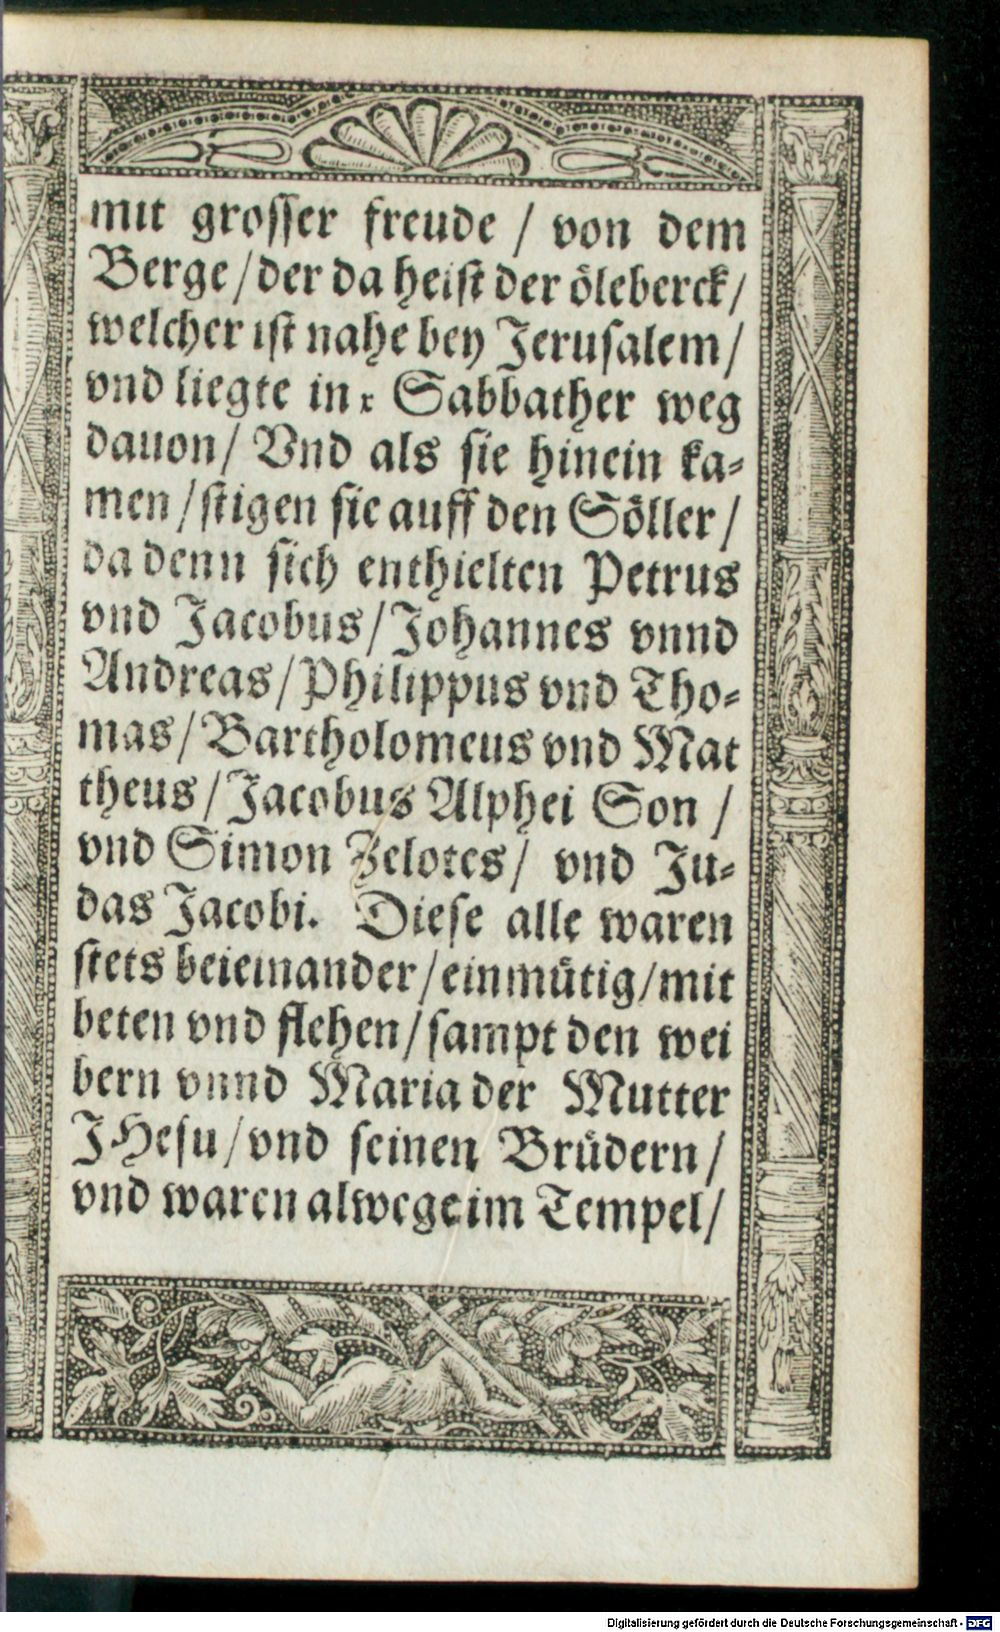 mit grosser freude / von dem
Berge / der da heist der öleberck /
welcher ist nahe bey Jerusalem /
vnd liegte in r Sabbather weg
dauon / Vnd als sie hinein ka-
men / stigen sie auff den Söller /
da denn sich enthielten Petrus
vnd Jacobus / Johannes vnnd
Andreas / Philippus vnd Tho-
mas / Bartholomeus vnd Mat
theus / Jacobus Alphei Son /
vnd Simon Zelotes / vnd Ju-
das Jacobi. Diese alle waren
stets beieinander / einmütig / mit
beten vnd flehen / sampt den wei
bern vnnd Maria der Mutter
JHesu / vnd seinen Brüdern /
vnd waren alwege im Tempel /
Digitalisierung gefördert durch die Deutsche Forschungsgemeinschaft - DFG